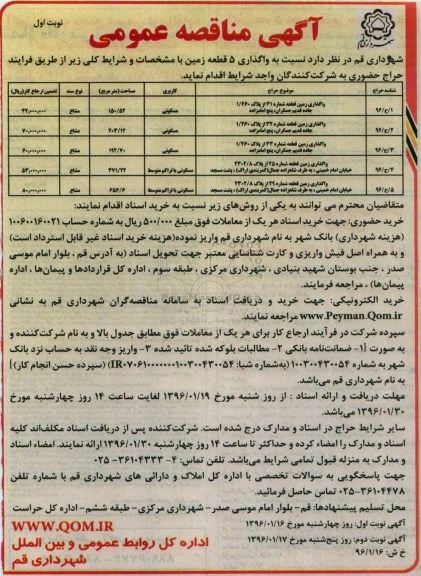 نوبت اول
آگهی مناقصه عمومی
شهرداری قم
شهرداری قم در نظر دارد نسبت به واگذاری ۵ قطعه زمین با مشخصات و شرایط کلی زیر از طریق فرایند
حراج حضوری به شرکت‌کنندگان واجد شرایط اقدام نماید.
شناسه حراج موضوع حراج کاربری مساحت (متر مربع) نوع سند تضمین ارجاع کار(ریال)
۹۶/ح/۱ واگذاری زمین قطعه شماره ۳۱ از پلاک ۱/۲۶۰ جاده قدیم جمکران، پنج امامزاده مسکونی ۱۵۰/۵۲ مشاع
۹۶/ح/۲ واگذاری زمین قطعه شماره ۳۲ از پلاک ۱/۲۶۰ جاده قدیم جمکران، پنج امامزاده مسکونی ۲۰۳/۱۲ مشاع ۷۰,۰۰۰,۰۰۰
۹۶/ح/۳ واگذاری زمین قطعه شماره ۳۳ از پلاک ۱/۲۶۰ جاده قدیم جمکران، پنج امامزاده مسکونی ۱۹۲/۷۰ مشاع ۶۰,۰۰۰,۰۰۰
۹۶/ح/۴ واگذاری زمین قطعه شماره ۲۵ از پلاک ۲۳۰۲/۸ خیابان امام خمینی، به طرف شاهزاده جمال(کمربندی اراک) ، پشت مسجد مسکونی با تراکم متوسط ۴۷۱/۲۲ مشاع ۵۳,۰۰۰,۰۰۰
۹۶/ح/۵ واگذاری زمین قطعه شماره ۲۹ از پلاک ۲۳۰۲/۸ خیابان امام خمینی، به طرف شاهزاده جمال(کمربندی اراک) ، پشت مسجد مسکونی با تراکم متوسط ۶۵۶/۶ مشاع ۸۰,۰۰۰,۰۰۰
متقاضیان محترم می توانند به یکی از روش‌های زیر نسبت به خرید اسناد اقدام نمایند:
خرید حضوری: جهت خرید اسناد هر یک از معاملات فوق مبلغ ۵۰۰/۰۰۰ ریال به شماره حساب ۱۰۰۶۰۰۱۶۰۰۲۱
(هزینه شهرداری) بانک شهر به نام شهرداری قم واریز نموده(هزینه خرید اسناد غیر قابل استرداد است)
و به همراه اصل فیش واریزی و کارت شناسایی معتبر جهت تحویل اسناد (به آدرس قم ، بلوار امام موسی
صدر ، جنب بوستان شهید بنیادی ، شهرداری مرکزی ، طبقه سوم ، اداره کل قراردادها و پیمان‌ها ، اداره
پیمان‌ها) ، مراجعه فرمایند.
خرید الکترونیکی: جهت خرید و دریافت اسناد به سامانه مناقصه‌گران شهرداری قم به نشانی
www.Peyman.Qom.ir مراجعه نمایند.
سپرده شرکت در فرآیند ارجاع کار برای هر یک از معاملات فوق مطابق جدول بالا و به نام شرکت‌کننده و
به صورت [۱- ضمانت‌نامه بانکی ۲- مطالبات بلوکه شده تائید شده ۳- واریز وجه نقد به حساب نزد بانک
شهر به شماره ۱۰۰۳۰۰۴۳۰۰۵۴ (به‌شماره شبا: IR۰۷۰۶۱۰۰۰۰۰۰۰۱۰۰۳۰۰۴۳۰۰۵۴) (سپرده حسن انجام کار)]
به نام شهرداری قم می‌باشد.
مهلت دریافت و ارائه اسناد : از روز شنبه مورخ ۱۳۹۶/۰۱/۱۹ لغایت ساعت ۱۴ روز چهارشنبه مورخ
۱۳۹۶/۰۱/۳۰ می‌باشد.
سایر شرایط حراج در اسناد و مدارک درج شده است. شرکت‌کننده پس از دریافت اسناد مکلف‌اند کلیه
اسناد و مدارک را امضاء کرده و حداکثر تا ساعت ۱۴ روز چهارشنبه ۱۳۹۶/۰۱/۳۰ ارائه نمایند. امضاء اسناد
و مدارک به منزله قبول تمامی شرایط می‌باشد. تلفن تماس: ۴- ۳۶۱۰۴۳۳۳-۰۲۵
جهت پاسخگویی به سوالات تخصصی با اداره کل املاک و دارائی های شهرداری قم با شماره تلفن
۰۲۵-۳۶۱۰۴۴۷۸ تماس حاصل فرمائید.
محل تسلیم پیشنهادها: قم- بلوار امام موسی صدر- شهرداری مرکزی- طبقه ششم- اداره کل حراست
آگهی نوبت اول: روز چهارشنبه مورخ ۱۳۹۶/۰۱/۱۶
آگهی نوبت دوم: روز پنج‌شنبه مورخ ۱۳۹۶/۰۱/۱۷
خ ش: ۹۶/۱/۱۶
WWW.QOM.IR
اداره کل روابط عمومی و بین الملل
شهرداری قم